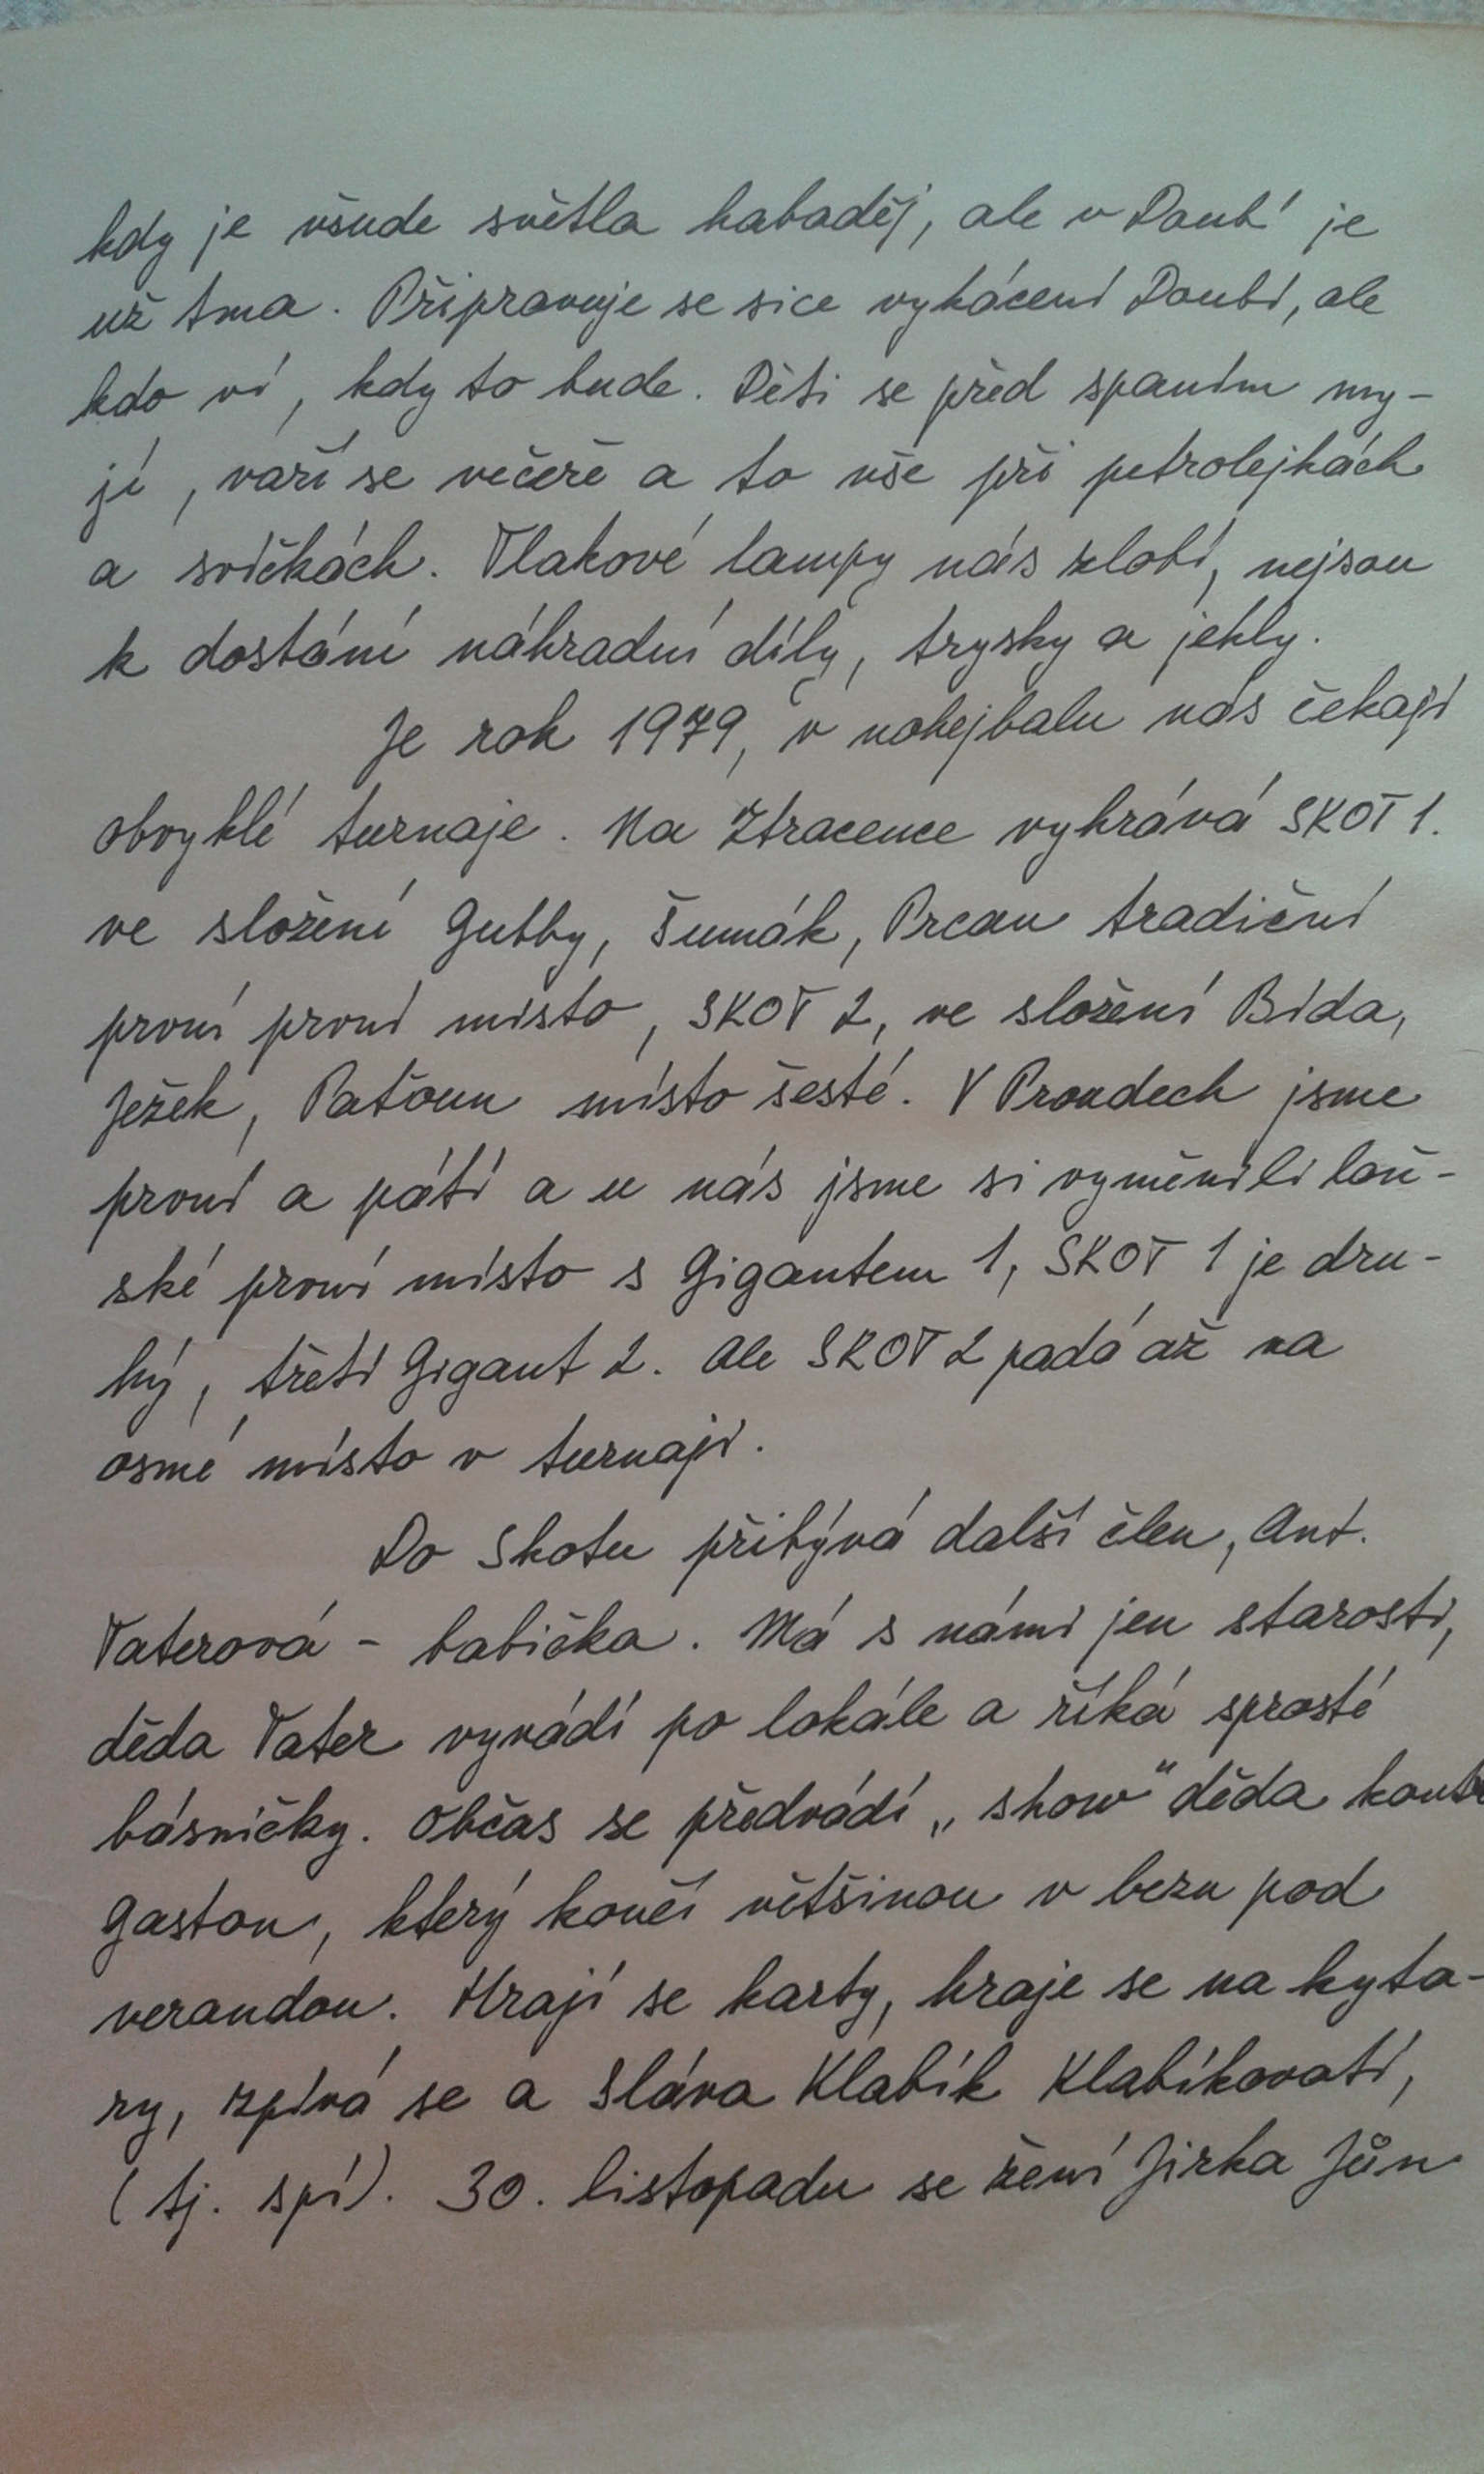 kdy je všude světla habaděj, ale v Doubí je
už tma. Připravuje se sice vykácení Doubí, ale
kdo ví, kdy to bude. Děti se před spaním my-
jí, vaří se večeře a to vše při petrolejkách
a svíčkách. Tlakové lampy nás zlobí, nejsou
k dostání náhradní díly, trysky a jehly.
Je rok 1979, v nohejbalu nás čekají
obvyklé turnaje. Na Ztracence vyhrává SKOT 1.
ve složení Gutby, Šumák, Prcan tradiční
první první místo, SKOT 2, ve složení Bída,
Ježek, Paťoun místo šesté. V Proudech jsme
první a pátí a u nás jsme si vyměnili loň-
ské první místo s Gigantem 1, SKOT 1 je dru-
hý, třetí Gigant 2. Ale SKOT 2 padá až na
osmé místo v turnaji.
Do Skotu přibývá další člen, Ant.
Taterová - babička. Má s námi jen starosti,
děda Tater vyvádí po lokále a říká sprosté
básničky. Občas se předvádí „show" děda
Gaston, který končí většinou v bezu pod
verandou. Hrají se karty, hraje se na kyta-
ry, zpívá se a Sláva Klabík Klabíkovatí,
(tj. spí). 30. listopadu se žení Jirka Jůn